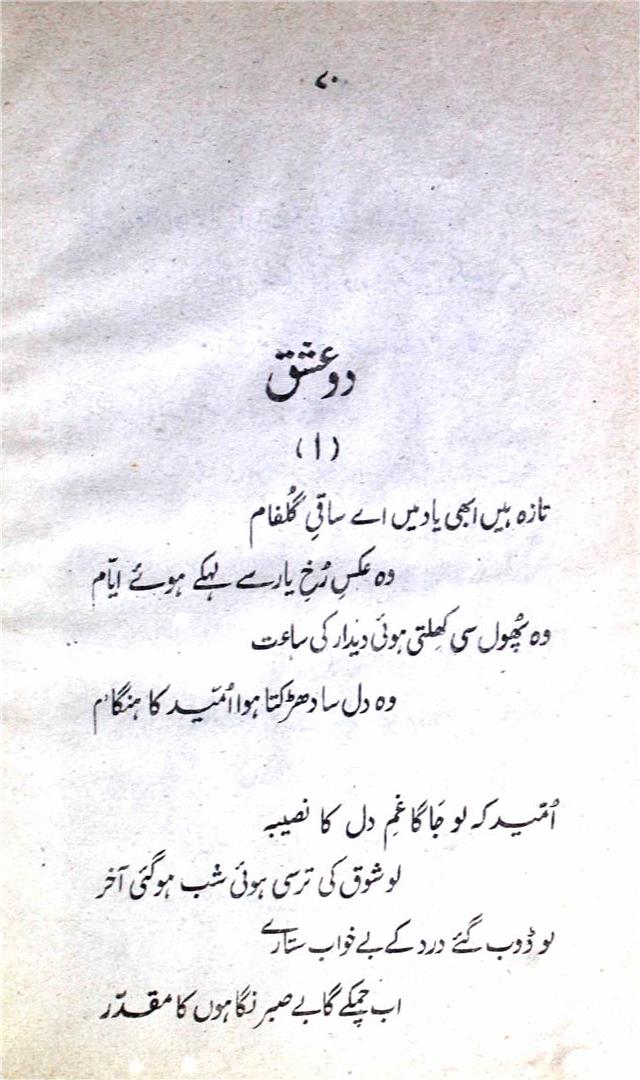 ۷۰
دو عشق
(۱)
تازہ ہیں ابھی یاد میں اے ساقیِ گُلفام
وہ عکسِ رُخِ یار سے لہکے ہوئے ایّام
وہ پھُول سی کھِلتی ہوئی دیدار کی ساعت
وہ دل سا دھڑکتا ہوا اُمّید کا ہنگام
اُمّید کہ لو جَاگا غمِ دل کا نصیبہ
لو شوق کی ترسی ہوئی شب ہو گئی آخر
لو ڈوب گئے درد کے بے خواب ستارے
اب چمکے گا بے صبر نگاہوں کا مقدّر